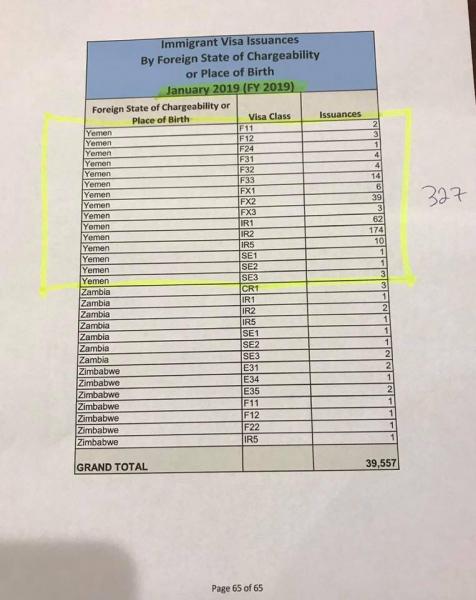 Immigrant Visa Issuances
By Foreign State of Chargeability
or Place of Birth
January 2019 (FY 2019)
Foreign State of Chargeability or
Place of Birth Visa Class Issuances
Yemen F11 2
Yemen F12 3
Yemen F24 1
Yemen F31 4
Yemen F32 4
Yemen F33 14
Yemen FX1 6
Yemen FX2 39
Yemen FX3 3
Yemen IR1 62
Yemen IR2 174
Yemen IR5 10
Yemen SE1 1
Yemen SE2 1
Yemen SE3 3
327
Zambia CR1 3
Zambia IR1 1
Zambia IR2 2
Zambia IR5 1
Zambia SE1 1
Zambia SE2 1
Zambia SE3 2
Zimbabwe E31 2
Zimbabwe E34 1
Zimbabwe E35 2
Zimbabwe F11 1
Zimbabwe F12 1
Zimbabwe F22 1
Zimbabwe IR5 1
GRAND TOTAL 39,557
Page 65 of 65